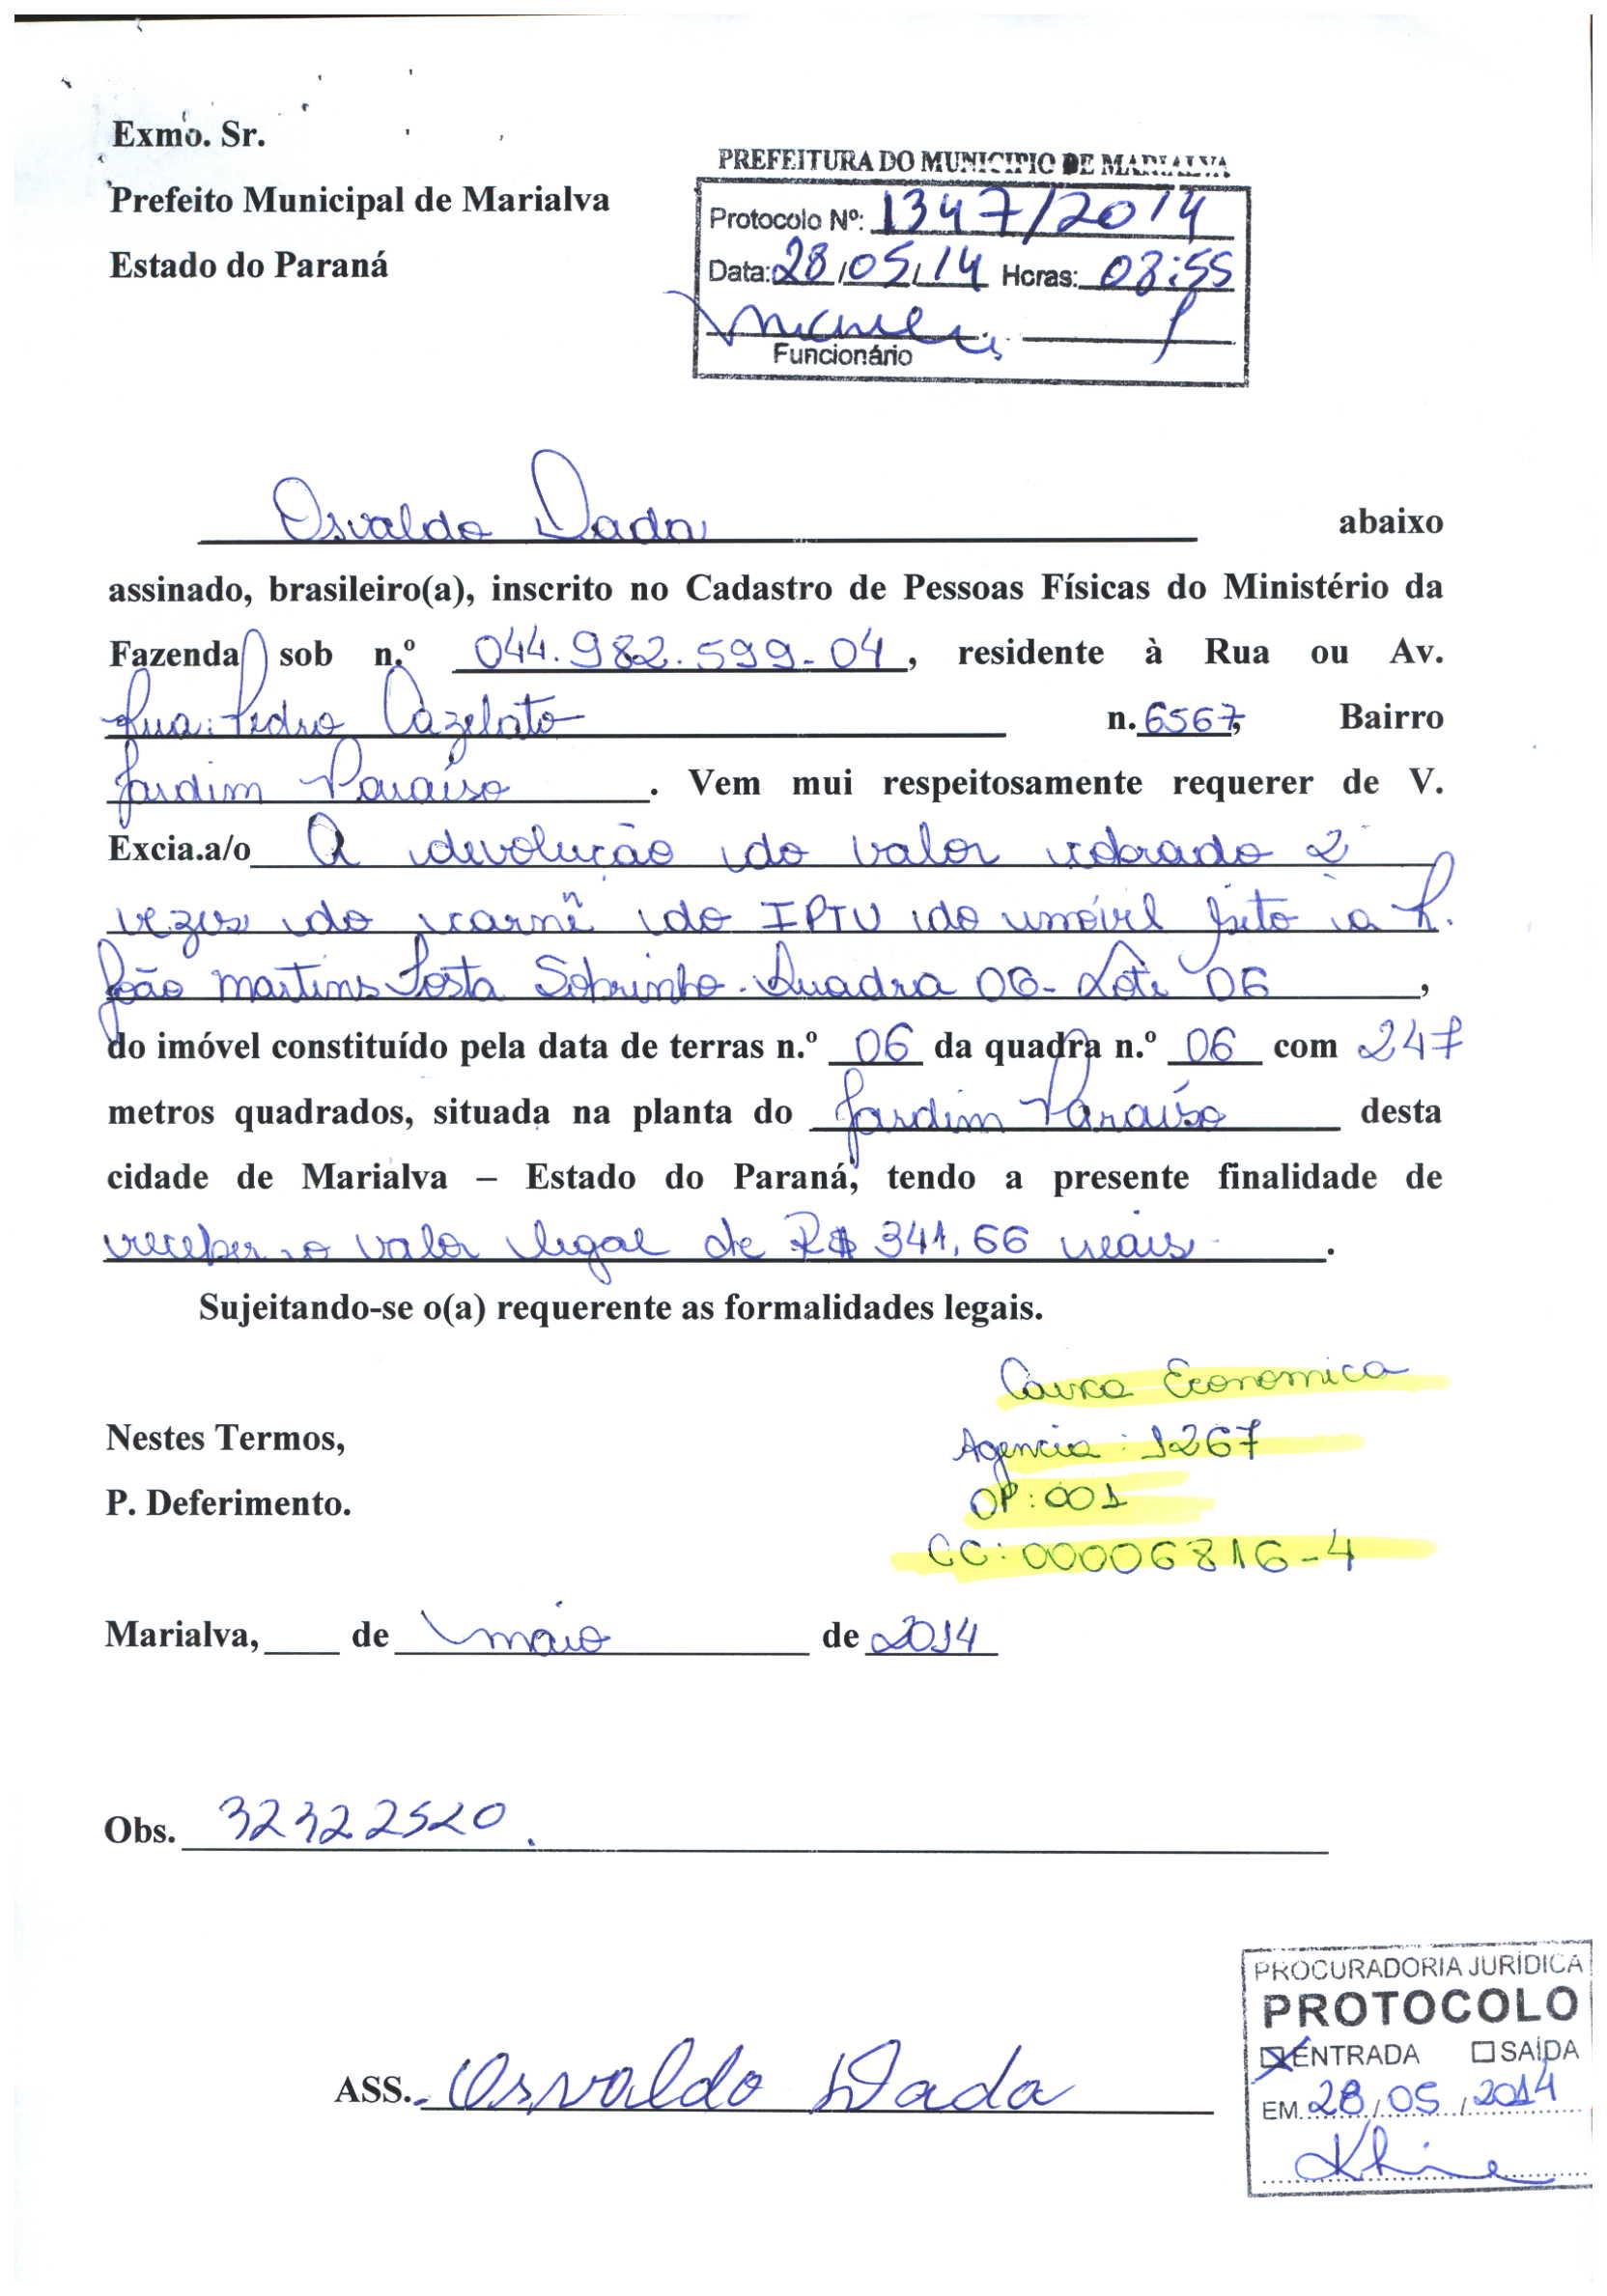 Exmo. Sr.
Prefeito Municipal de Marialva
Estado do Paraná
PREFEITURA DO MUNICIPIO DE MARIALVA
Protocolo Nº: 1347/2014
Data: 28/05/14 Horas: 08:55
Funcionário
Osvaldo Dada abaixo
assinado, brasileiro(a), inscrito no Cadastro de Pessoas Físicas do Ministério da
Fazenda sob n.º 044.982.599-04, residente à Rua ou Av.
Rua: Pedro Cazelato n. 6567, Bairro
Jardim Paraíso. Vem mui respeitosamente requerer de V.
Excia.a/o A devolução do valor cobrado 2
vezes do carnê do IPTU do imóvel feito a R.
João Martins Sosta Sobrinho - Quadra 06 - Lote 06,
do imóvel constituído pela data de terras n.º 06 da quadra n.º 06 com 247
metros quadrados, situada na planta do Jardim Paraíso desta
cidade de Marialva – Estado do Paraná, tendo a presente finalidade de
receber o valor legal de R$ 341,66 reais.
Sujeitando-se o(a) requerente as formalidades legais.
Caixa Economica
Nestes Termos,
Agencia: 1267
P. Deferimento.
OP: 001
CC: 00006816-4
Marialva, ____ de maio de 2014
Obs. 32322520.
ASS. Osvaldo Dada
PROCURADORIA JURÍDICA
PROTOCOLO
ENTRADA SAÍDA
EM 28/05/2014